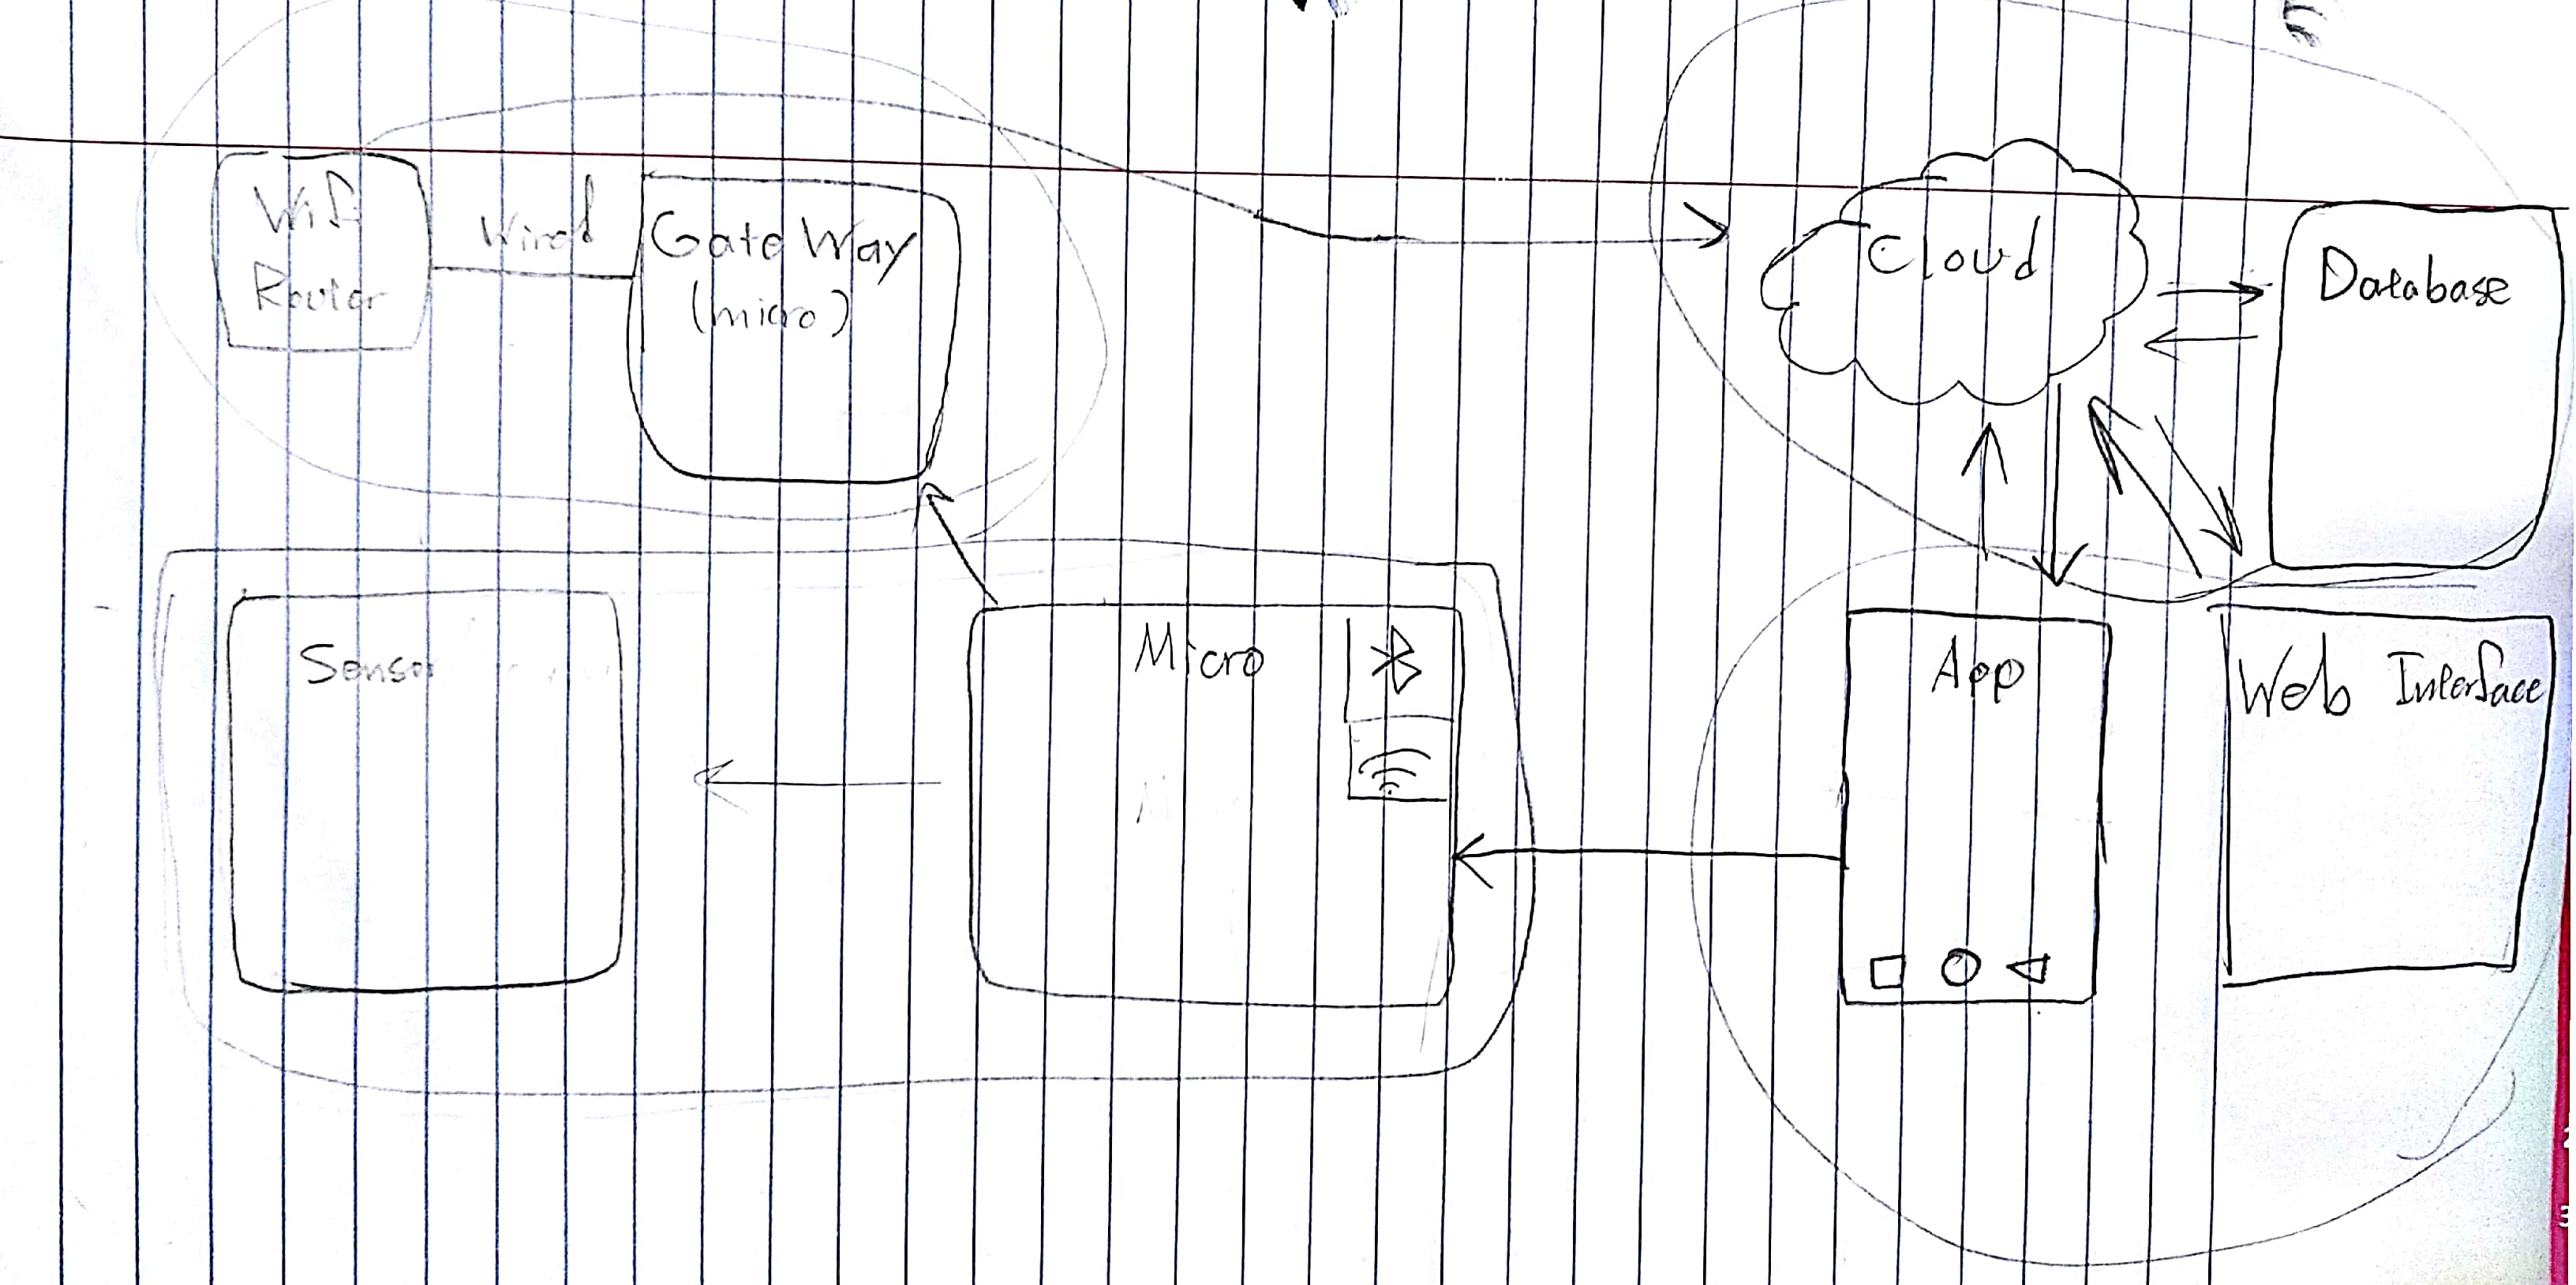 Wifi
Router
Wired
Gate Way
(micro)
Cloud
Database
Sensor
Micro
App
Web Interface